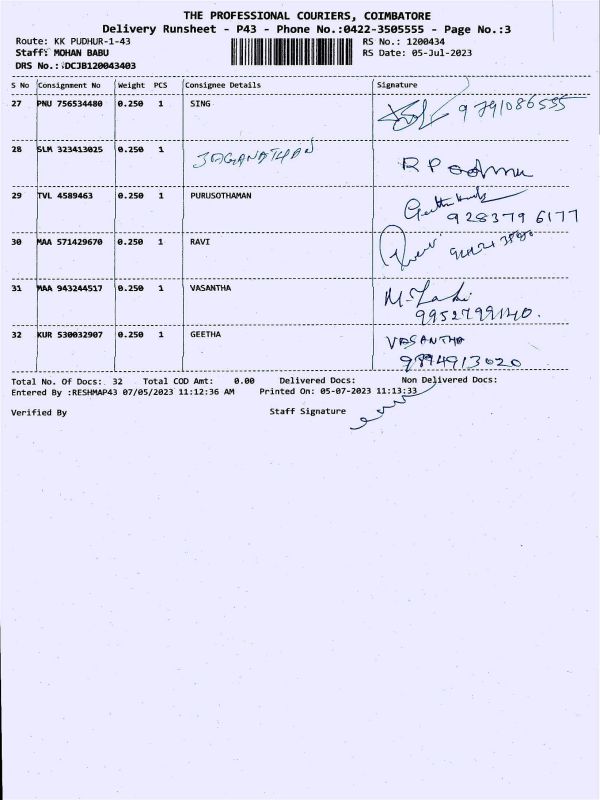 THE PROFESSIONAL COURIERS, COIMBATORE
Delivery Runsheet - P43 - Phone No.:0422-3505555 - Page No.:3
Route: KK PUDHUR-1-43 RS No.: 1200434
Staff: MOHAN BABU RS Date: 05-Jul-2023
DRS No.: DCJB120043403
S No Consignment No Weight PCS Consignee Details Signature
27 PNU 756534480 0.250 1 SING 9791086535
28 SLM 323413025 0.250 1 JAGANATHAN
29 TVL 4589463 0.250 1 PURUSOTHAMAN
9283796177
30 MAA 571429670 0.250 1 RAVI
31 MAA 943244517 0.250 1 VASANTHA
9952799140.
32 KUR 530032907 0.250 1 GEETHA VASANTHA
9894913020
Total No. Of Docs: 32 Total COD Amt: 0.00 Delivered Docs: Non Delivered Docs:
Entered By :RESHMAP43 07/05/2023 11:12:36 AM Printed On: 05-07-2023 11:13:33
Verified By Staff Signature